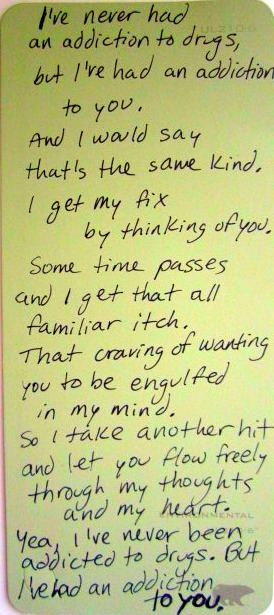 I've never had
an addiction to drugs,
but I've had an addiction
to you.
And I would say
that's the same kind.
I get my fix
by thinking of you.
Some time passes
and I get that all
familiar itch.
That craving of wanting
you to be engulfed
in my mind.
So I take another hit
and let you flow freely
through my thoughts
and my heart.
Yea, I've never been
addicted to drugs. But
I've had an addiction
to you.